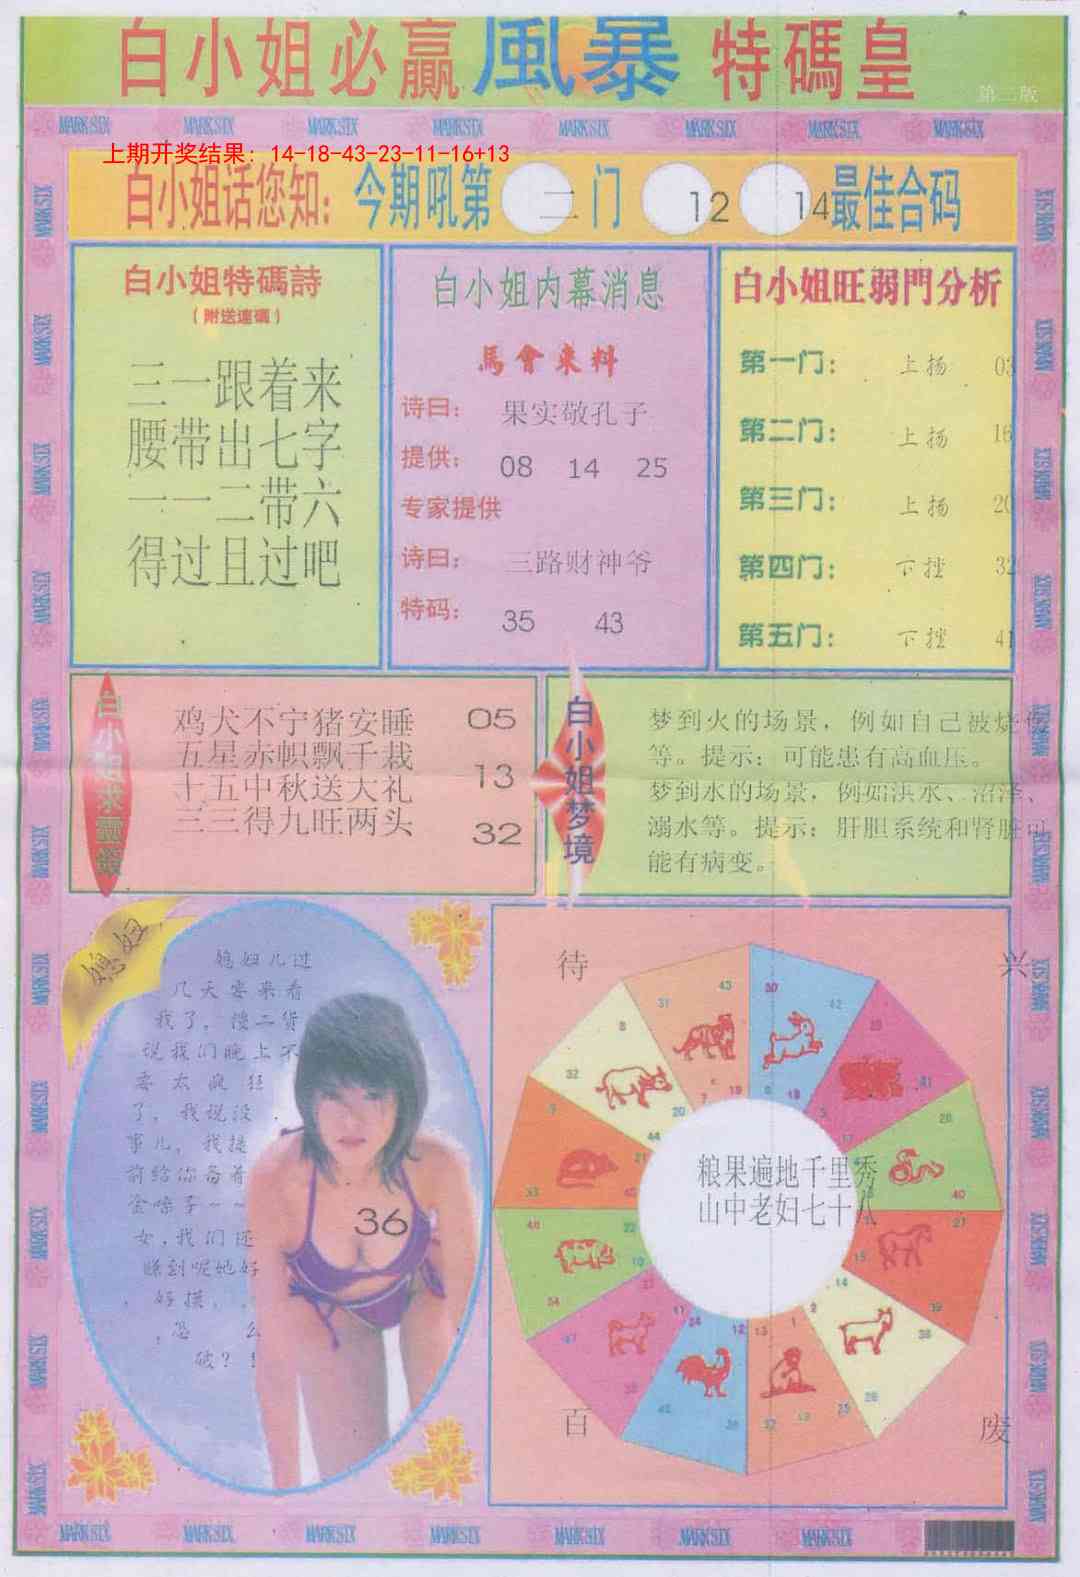 白小姐必贏風暴特碼皇
第二版
MARKSIX MARKSIX MARKSIX MARKSIX MARKSIX MARKSIX MARKSIX MARKSIX
上期开奖结果：14-18-43-23-11-16+13
白小姐话您知：今期吼第 二 门 12 14 最佳合码
白小姐特碼詩
（附送連碼）
三一跟着来
腰带出七字
一一二带六
得过且过吧
白小姐内幕消息
馬會來料
诗曰： 果实敬孔子
提供： 08 14 25
专家提供
诗曰： 三路财神爷
特码： 35 43
白小姐旺弱門分析
第一门： 上扬 03
第二门： 上扬 16
第三门： 上扬 20
第四门： 下挫 32
第五门： 下挫 41
白小姐求靈籤
鸡犬不宁猪安睡 05
五星赤帜飘千栽
十五中秋送大礼 13
三三得九旺两头 32
白小姐梦境
梦到火的场景，例如自己被烧伤
等。提示：可能患有高血压。
梦到水的场景，例如洪水、沼泽、
溺水等。提示：肝胆系统和肾脏可
能有病变。
媳妇
媳妇儿过
几天要来看
我了，楼二货
说我们晚上不
要太疯狂
了，我说没
事儿，我提
前给你备着
金嗓子~~
女，我们还
睡到呢她好
，好摸，．
，怎 么
破？！
36
待 兴
粮果遍地千里秀
山中老妇七十八
百 废
MARKSIX MARKSIX MARKSIX MARKSIX MARKSIX MARKSIX MARKSIX